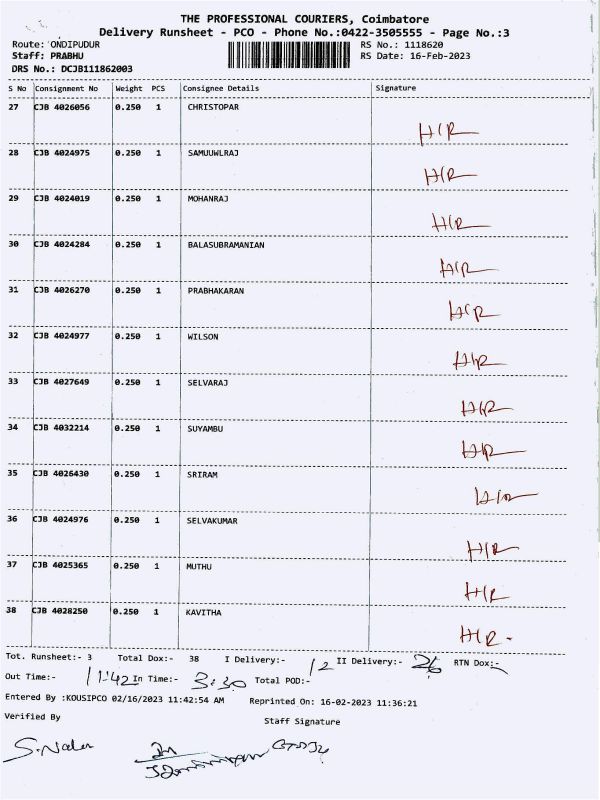 THE PROFESSIONAL COURIERS, Coimbatore
Delivery Runsheet - PCO - Phone No.:0422-3505555 - Page No.:3
Route: ONDIPUDUR RS No.: 1118620
Staff: PRABHU RS Date: 16-Feb-2023
DRS No.: DCJB111862003
S No Consignment No Weight PCS Consignee Details Signature
27 CJB 4026056 0.250 1 CHRISTOPAR H/R
28 CJB 4024975 0.250 1 SAMUUWLRAJ H/R
29 CJB 4024019 0.250 1 MOHANRAJ H/R
30 CJB 4024284 0.250 1 BALASUBRAMANIAN H/R
31 CJB 4026270 0.250 1 PRABHAKARAN H/R
32 CJB 4024977 0.250 1 WILSON H/R
33 CJB 4027649 0.250 1 SELVARAJ H/R
34 CJB 4032214 0.250 1 SUYAMBU H/R
35 CJB 4026430 0.250 1 SRIRAM H/R
36 CJB 4024976 0.250 1 SELVAKUMAR H/R
37 CJB 4025365 0.250 1 MUTHU H/R
38 CJB 4028250 0.250 1 KAVITHA H/R
Tot. Runsheet:- 3 Total Dox:- 38 I Delivery:- 12 II Delivery:- 26 RTN Dox:-
Out Time:- 11:42 In Time:- 3:30 Total POD:-
Entered By :KOUSIPCO 02/16/2023 11:42:54 AM Reprinted On: 16-02-2023 11:36:21
Verified By Staff Signature